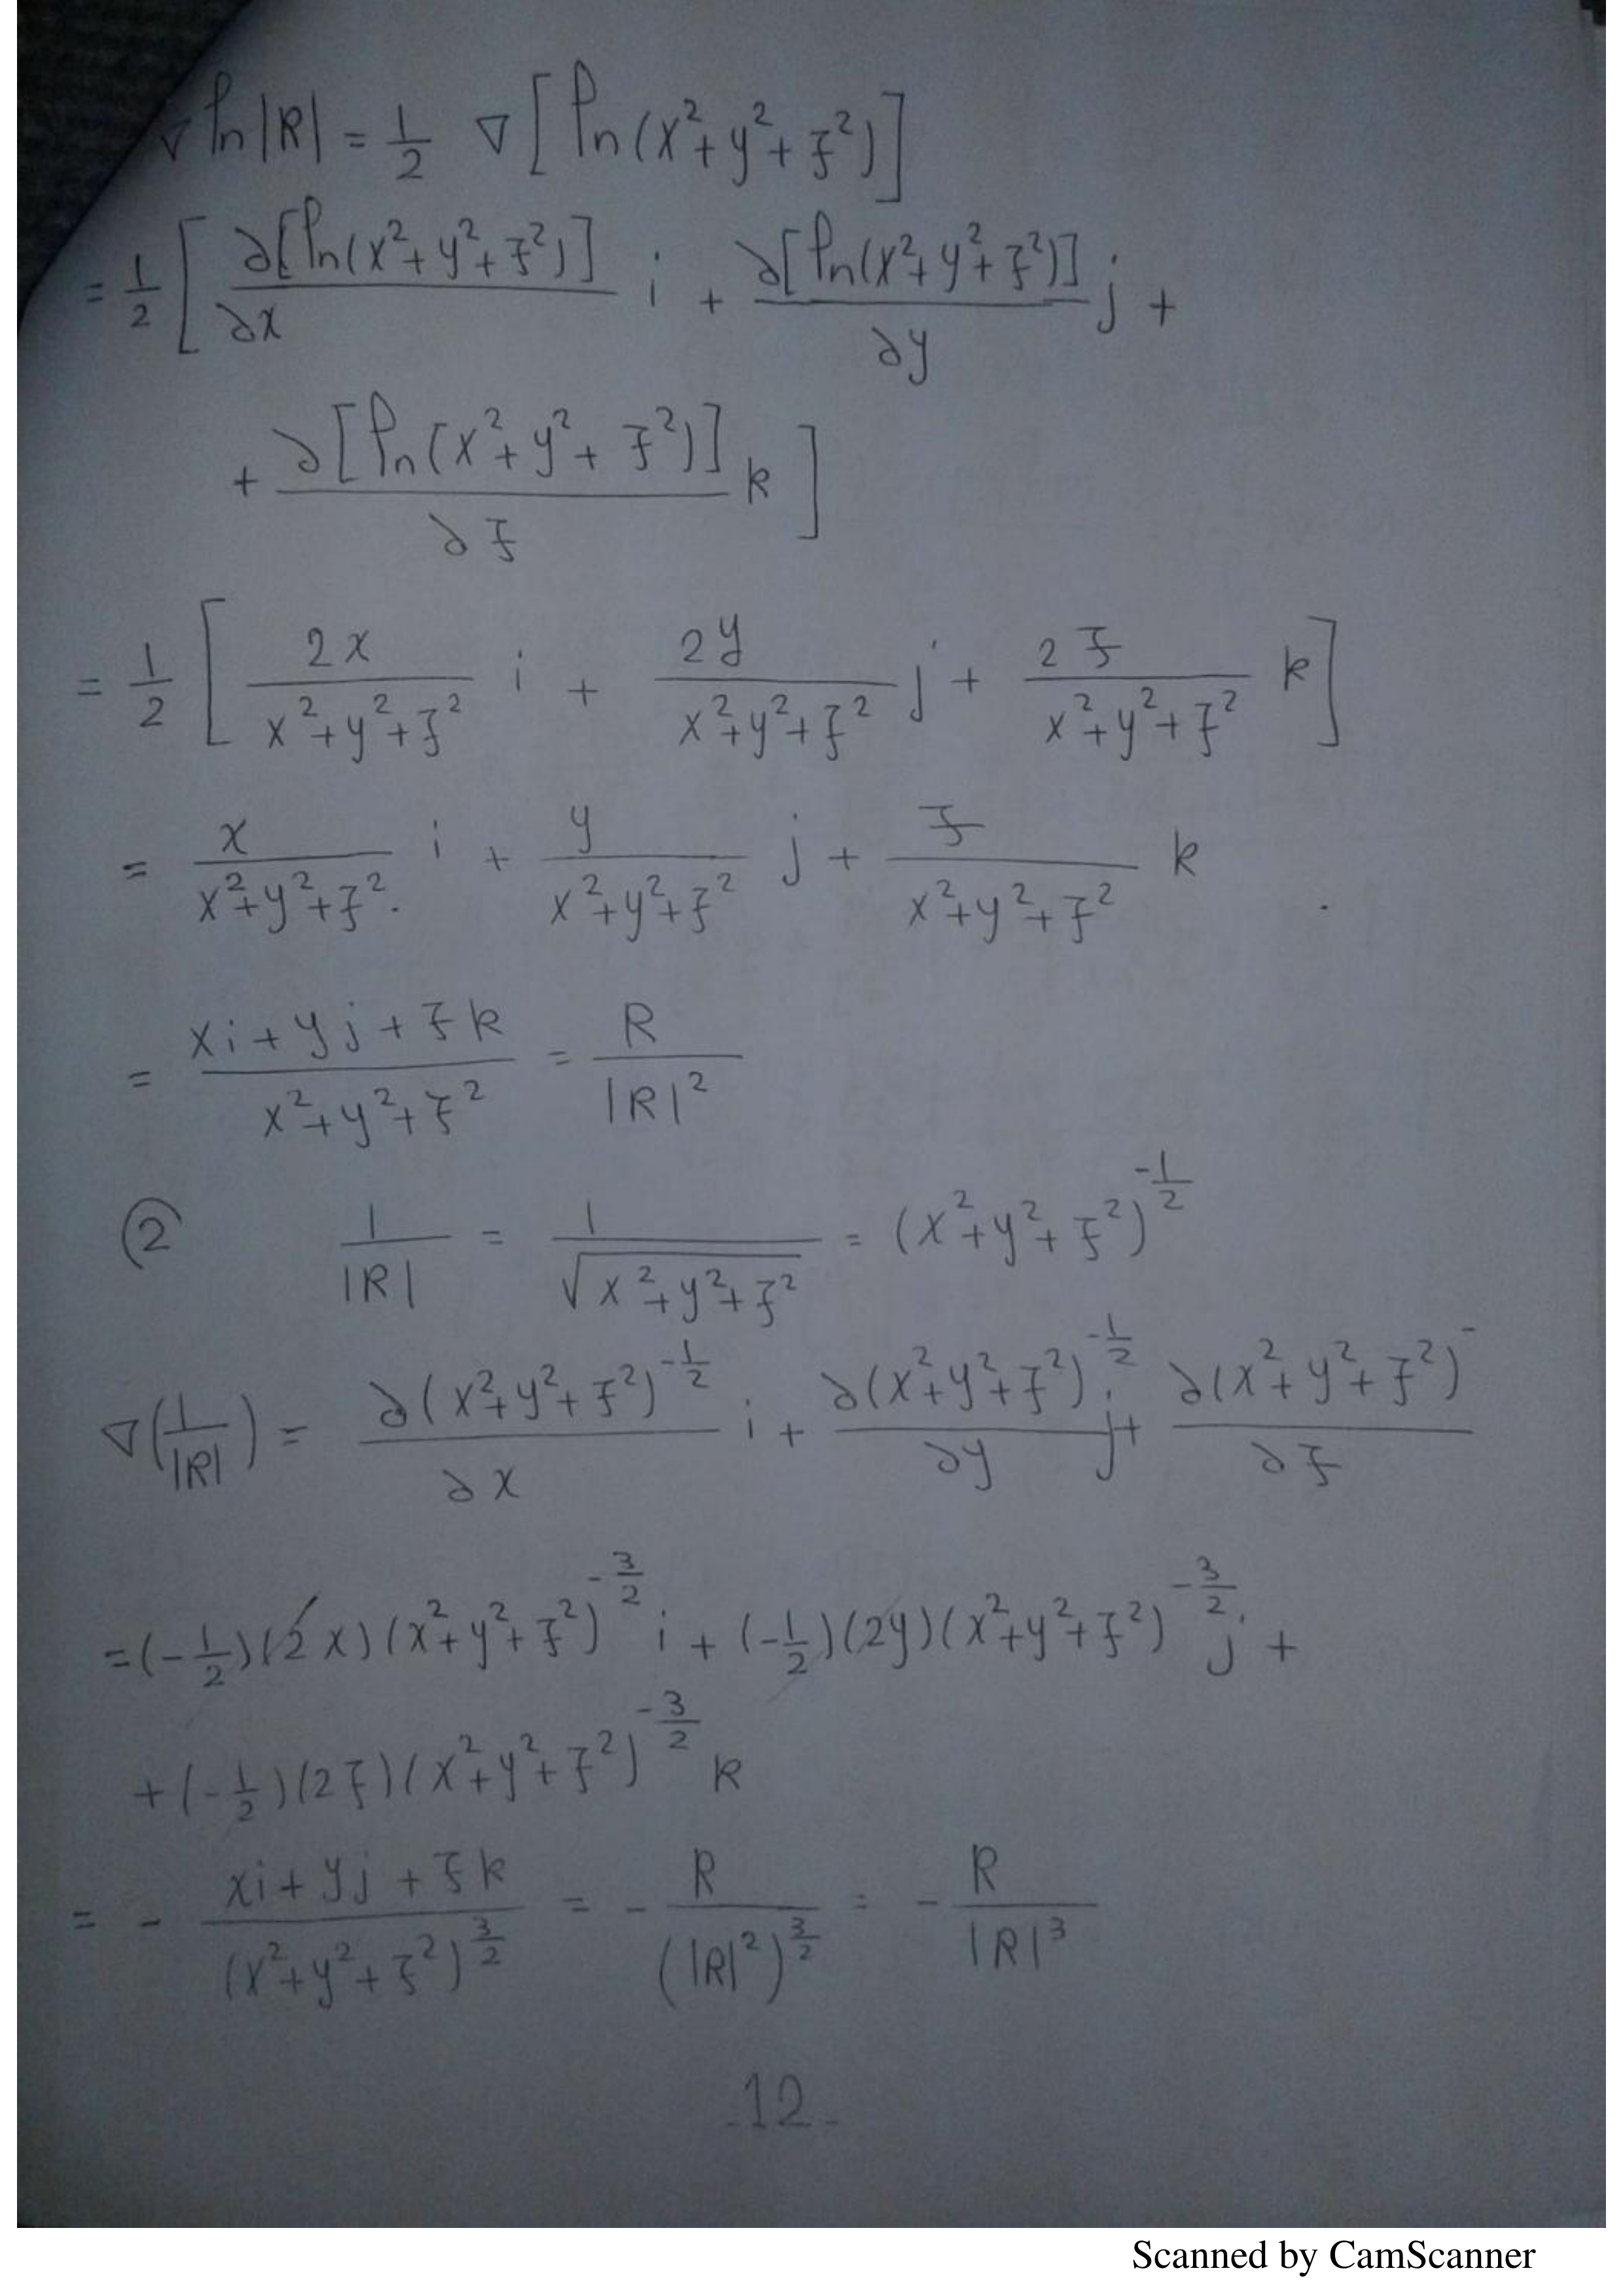 ∇ ln|R| = 1/2 ∇ [ ln(x²+y²+z²) ]
= 1/2 [ ∂[ln(x²+y²+z²)]/∂x i + ∂[ln(x²+y²+z²)]/∂y j +
+ ∂[ln(x²+y²+z²)]/∂z k ]
= 1/2 [ 2x/(x²+y²+z²) i + 2y/(x²+y²+z²) j + 2z/(x²+y²+z²) k ]
= x/(x²+y²+z²) i + y/(x²+y²+z²) j + z/(x²+y²+z²) k
= (xi+yj+zk)/(x²+y²+z²) = R/|R|²
② 1/|R| = 1/√(x²+y²+z²) = (x²+y²+z²)^(-1/2)
∇(1/|R|) = ∂(x²+y²+z²)^(-1/2)/∂x i + ∂(x²+y²+z²)^(-1/2)/∂y j + ∂(x²+y²+z²)^-/∂z
= (-1/2)(2x)(x²+y²+z²)^(-3/2) i + (-1/2)(2y)(x²+y²+z²)^(-3/2) j +
+ (-1/2)(2z)(x²+y²+z²)^(-3/2) k
= - (xi+yj+zk)/(x²+y²+z²)^(3/2) = - R/(|R|²)^(3/2) = - R/|R|³
-12-
Scanned by CamScanner